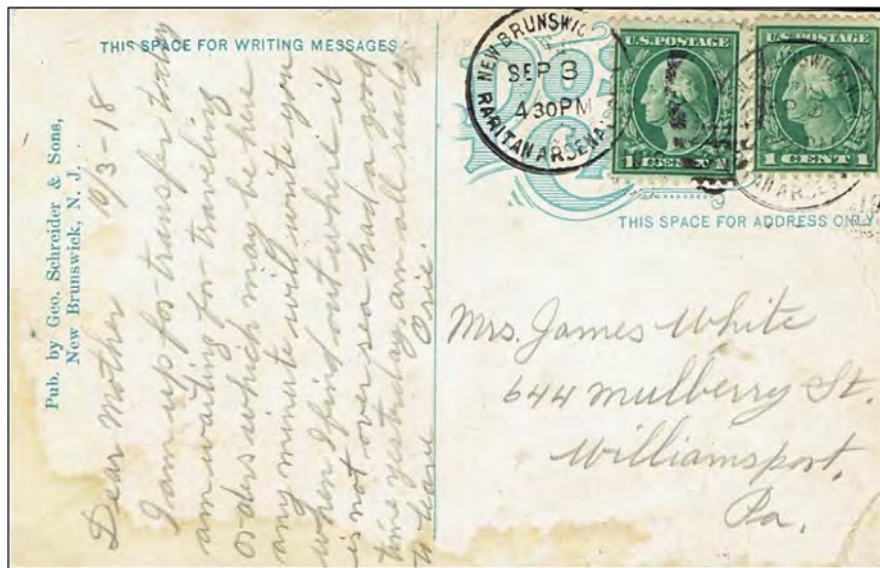 THIS SPACE FOR WRITING MESSAGES
Pub. by Geo. Schreider & Sons,
New Brunswick, N. J.
Dear Mother 9/3-18
I am up for transfer today
am waiting for traveling
orders which may be here
any minute will write you
when I find out where it
is not over sea had a good
time yesterday, am all ready
to leave Orie.
NEW BRUNSWIC
SEP 3
4 30 PM
RARITAN ARSENA
U.S. POSTAGE
1 CENT 1
U.S. POSTAGE
1 CENT 1
THIS SPACE FOR ADDRESS ONLY
Mrs. James White
644 Mulberry St.
Williamsport,
Pa.